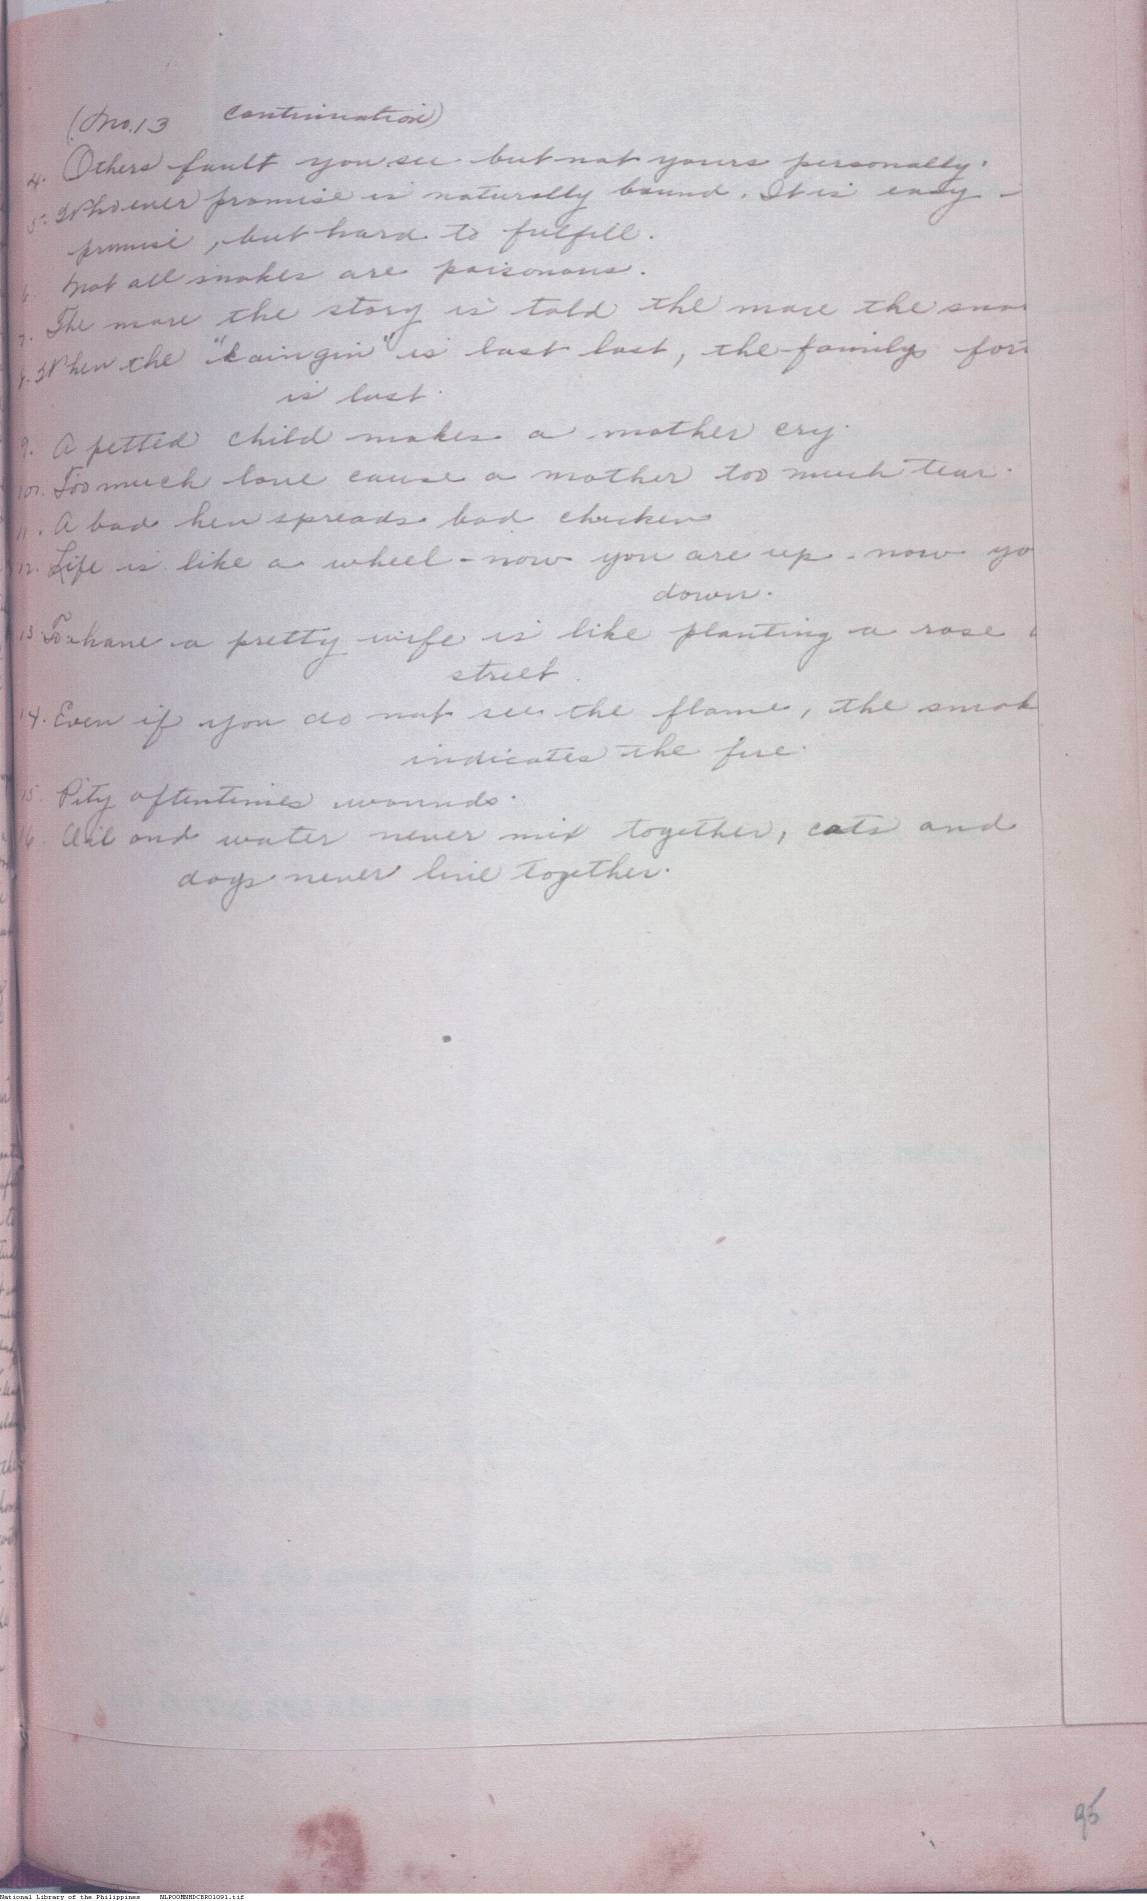 (No. 13 Continuation)
4. Others fault you see but not yours personally.
5. Whoever promise is naturally bound. It is easy
promise, but hard to fulfill.
6. Not all snakes are poisonous.
7. The more the story is told the more the
8. When the "kaingin" is last lost, the family for
is lost.
9. A petted child makes a mother cry.
10. Too much love cause a mother too much tear.
11. A bad hen spreads bad chicken
12. Life is like a wheel - now you are up - now yo
down.
13. To have a pretty wife is like planting a rose
street.
14. Even if you do not see the flame, the smok
indicates the fire.
15. Pity oftentimes wounds.
16. Oil and water never mix together, cats and
dogs never live together.
95
National Library of the Philippines NLPOOMNHDCBRO1091.tif